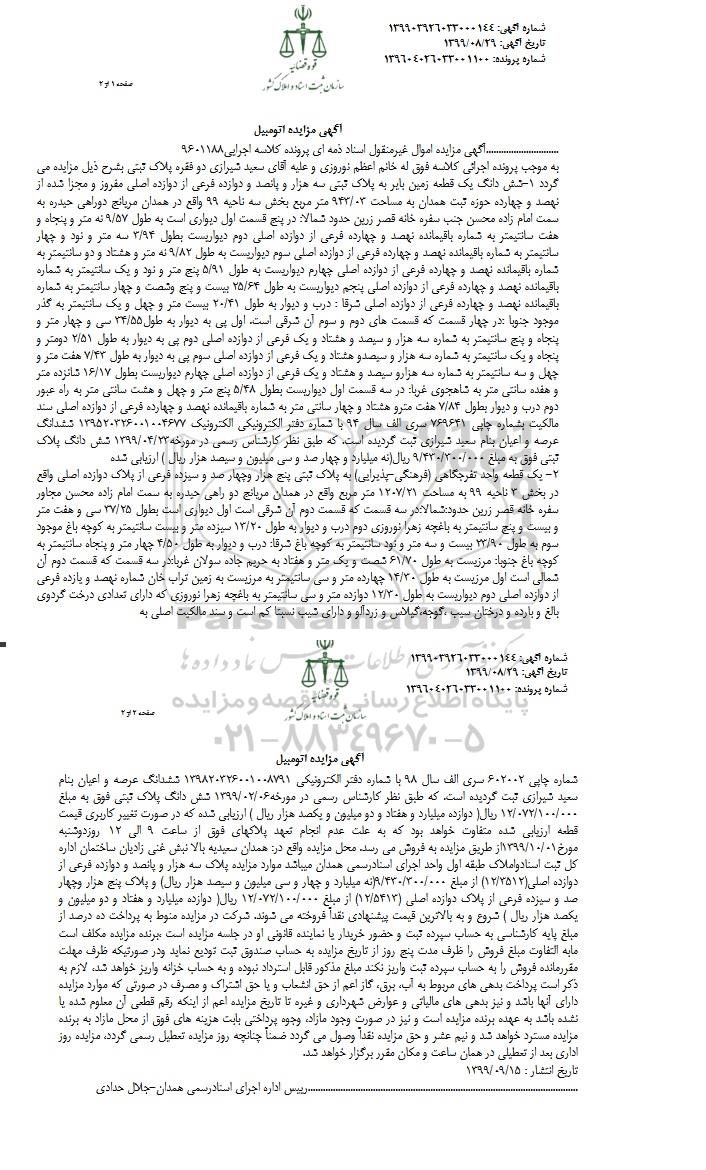 شماره آگهی: ۱۳۹۹۰۳۹۲۶۰۳۳۰۰۰۱۴۴
تاریخ آگهی: ۱۳۹۹/۰۸/۲۹
شماره پرونده: ۱۳۹۶۰۴۰۲۶۰۳۳۰۰۱۱۰۰
قوه قضائیه
سازمان ثبت اسناد و املاک کشور
صفحه ۱ از ۲
آگهی مزایده اتومبیل
............................آگهی مزایده اموال غیرمنقول اسناد ذمه ای پرونده کلاسه اجرایی۹۶۰۱۱۸۸
به موجب پرونده اجرائی کلاسه فوق له خانم اعظم نوروزی و علیه آقای سعید شیرازی دو فقره پلاک ثبتی بشرح ذیل مزایده می
گردد ۱-شش دانگ یک قطعه زمین بایر به پلاک ثبتی سه هزار و پانصد و دوازده فرعی از دوازده اصلی مفروز و مجزا شده از
نهصد و چهارده حوزه ثبت همدان به مساحت ۹۴۳/۰۳ متر مربع بخش سه ناحیه ۹۹ واقع در همدان مریانج دوراهی حیدره به
سمت امام زاده محسن جنب سفره خانه قصر زرین حدود شمالا: در پنج قسمت اول دیواری است به طول ۹/۵۷ نه متر و پنجاه و
هفت سانتیمتر به شماره باقیمانده نهصد و چهارده فرعی از دوازده اصلی دوم دیواریست بطول ۳/۹۴ سه متر و نود و چهار
سانتیمتر به شماره باقیمانده نهصد و چهارده فرعی از دوازده اصلی سوم دیواریست به طول ۹/۸۲ نه متر و هشتاد و دو سانتیمتر به
شماره باقیمانده نهصد و چهارده فرعی از دوازده اصلی چهارم دیواریست به طول ۵/۹۱ پنج متر و نود و یک سانتیمتر به شماره
باقیمانده نهصد و چهارده فرعی از دوازده اصلی پنجم دیواریست به طول ۲۵/۶۴ بیست و پنج وشصت و چهار سانتیمتر به شماره
باقیمانده نهصد و چهارده فرعی از دوازده اصلی شرقا : درب و دیوار به طول ۲۰/۴۱ بیست متر و چهل و یک سانتیمتر به گذر
موجود جنوبا :در چهار قسمت که قسمت های دوم و سوم آن شرقی است. اول پی به دیوار به طول۳۴/۵۵ سی و چهار متر و
پنجاه و پنج سانتیمتر به شماره سه هزار و سیصد و هشتاد و یک فرعی از دوازده اصلی دوم پی به دیوار به طول ۲/۵۱ دومتر و
پنجاه و یک سانتیمتر به شماره سه هزار و سیصدو هشتاد و یک فرعی از دوازده اصلی سوم پی به دیوار به طول ۷/۴۳ هفت متر و
چهل و سه سانتیمتر به شماره سه هزارو سیصد و هشتاد و یک فرعی از دوازده اصلی چهارم دیواریست بطول ۱۶/۱۷ شانزده متر
و هفده سانتی متر به شاهجوی غربا: در سه قسمت اول دیواریست بطول ۵/۴۸ پنج متر و چهل و هشت سانتی متر به راه عبور
دوم درب و دیوار بطول ۷/۸۴ هفت مترو هشتاد و چهار سانتی متر به شماره باقیمانده نهصد و چهارده فرعی از دوازده اصلی سند
مالکیت بشماره چاپی ۷۶۹۶۴۱ سری الف سال ۹۴ با شماره دفتر الکترونیکی الکترونیک ۱۳۹۵۲۰۳۲۶۰۰۱۰۰۴۶۷۷ ششدانگ
عرصه و اعیان بنام سعید شیرازی ثبت گردیده است. که طبق نظر کارشناس رسمی در مورخه۱۳۹۹/۰۴/۲۳ شش دانگ پلاک
ثبتی فوق به مبلغ ۹/۴۳۰/۳۰۰/۰۰۰ ریال(نه میلیارد و چهار صد و سی میلیون و سیصد هزار ریال ) ارزیابی شده
۲- یک قطعه واحد تفرجگاهی (فرهنگی-پذیرایی) به پلاک ثبتی پنج هزار وچهار صد و سیزده فرعی از پلاک دوازده اصلی واقع
در بخش ۳ ناحیه ۹۹ به مساحت ۱۲۰۷/۲۱ متر مربع واقع در همدان مریانج دو راهی حیدره به سمت امام زاده محسن مجاور
سفره خانه قصر زرین حدود:شمالا:در سه قسمت که قسمت دوم آن شرقی است اول دیواری است بطول ۳۷/۲۵ سی و هفت متر
و بیست و پنج سانتیمتر به باغچه زهرا نوروزی دوم درب و دیوار به طول ۱۳/۲۰ سیزده متر و بیست سانتیمتر به کوچه باغ موجود
سوم به طول ۲۳/۹۰ بیست و سه متر و نود سانتیمتر به کوچه باغ شرقا: درب و دیوار به طول ۴/۵۰ چهار متر و پنجاه سانتیمتر به
کوچه باغ جنوبا: مرزیست به طول ۶۱/۷۰ شصت و یک متر و هفتاد به حریم جاده سولان غربا:در سه قسمت که قسمت دوم آن
شمالی است اول مرزیست به طول ۱۴/۳۰ چهارده متر و سی سانتیمتر به مرزیست به زمین تراب خان شماره نهصد و یازده فرعی
از دوازده اصلی دوم دیواریست به طول ۱۲/۳۰ دوازده متر و سی سانتیمتر به باغچه زهرا نوروزی که دارای تعدادی درخت گردوی
بالغ و بارده و درختان سیب ،گوجه،گیلاس و زردآلو و دارای شیب نسبتا کم است و سند مالکیت اصلی به
شماره آگهی: ۱۳۹۹۰۳۹۲۶۰۳۳۰۰۰۱۴۴
تاریخ آگهی: ۱۳۹۹/۰۸/۲۹
شماره پرونده: ۱۳۹۶۰۴۰۲۶۰۳۳۰۰۱۱۰۰
قوه قضائیه
سازمان ثبت اسناد و املاک کشور
صفحه ۲ از ۲
پایگاه اطلاع رسانی مناقصه و مزایده
۰۲۱-۸۸۳۴۹۶۷۰-۵
آگهی مزایده اتومبیل
شماره چاپی ۶۰۲۰۰۲ سری الف سال ۹۸ با شماره دفتر الکترونیکی ۱۳۹۸۲۰۳۲۶۰۰۱۰۰۸۷۹۱ ششدانگ عرصه و اعیان بنام
سعید شیرازی ثبت گردیده است. که طبق نظر کارشناس رسمی در مورخه۱۳۹۹/۰۲/۰۶ شش دانگ پلاک ثبتی فوق به مبلغ
۱۲/۰۷۲/۱۰۰/۰۰۰ ریال( دوازده میلیارد و هفتاد و دو میلیون و یکصد هزار ریال ) ارزیابی شده که در صورت تغییر کاربری قیمت
قطعه ارزیابی شده متفاوت خواهد بود که به علت عدم انجام تعهد پلاکهای فوق از ساعت ۹ الی ۱۲ روزدوشنبه
مورخ۱۳۹۹/۱۰/۰۱از طریق مزایده به فروش می رسد. محل مزایده واقع در: همدان سعیدیه بالا نبش غنی زادیان ساختمان اداره
کل ثبت اسنادواملاک طبقه اول واحد اجرای اسنادرسمی همدان میباشد موارد مزایده پلاک سه هزار و پانصد و دوازده فرعی از
دوازده اصلی(۱۲/۳۵۱۲) از مبلغ ۹/۴۳۰/۳۰۰/۰۰۰(نه میلیارد و چهار و سی میلیون و سیصد هزار ریال) و پلاک پنج هزار وچهار
صد و سیزده فرعی از پلاک دوازده اصلی (۱۲/۵۴۱۳) از مبلغ ۱۲/۰۷۲/۱۰۰/۰۰۰ ریال( دوازده میلیارد و هفتاد و دو میلیون و
یکصد هزار ریال ) شروع و به بالاترین قیمت پیشنهادی نقداً فروخته می شوند. شرکت در مزایده منوط به پرداخت ده درصد از
مبلغ پایه کارشناسی به حساب سپرده ثبت و حضور خریدار یا نماینده قانونی او در جلسه مزایده است ،برنده مزایده مکلف است
مابه التفاوت مبلغ فروش را ظرف مدت پنج روز از تاریخ مزایده به حساب صندوق ثبت تودیع نماید ودر صورتیکه ظرف مهلت
مقررمانده فروش را به حساب سپرده ثبت واریز نکند مبلغ مذکور قابل استرداد نبوده و به حساب خزانه واریز خواهد شد. لازم به
ذکر است پرداخت بدهی های مربوط به آب، برق، گاز اعم از حق انشعاب و یا حق اشتراک و مصرف در صورتی که موارد مزایده
دارای آنها باشد و نیز بدهی های مالیاتی و عوارض شهرداری و غیره تا تاریخ مزایده اعم از اینکه رقم قطعی آن معلوم شده یا
نشده باشد به عهده برنده مزایده است و نیز در صورت وجود مازاد، وجوه پرداختی بابت هزینه های فوق از محل مازاد به برنده
مزایده مسترد خواهد شد و نیم عشر و حق مزایده نقداً وصول می گردد ضمناً چنانچه روز مزایده تعطیل رسمی گردد، مزایده روز
اداری بعد از تعطیلی در همان ساعت و مکان مقرر برگزار خواهد شد.
تاریخ انتشار : ۱۳۹۹/۰۹/۱۵
............................رییس اداره اجرای اسنادرسمی همدان-جلال حدادی